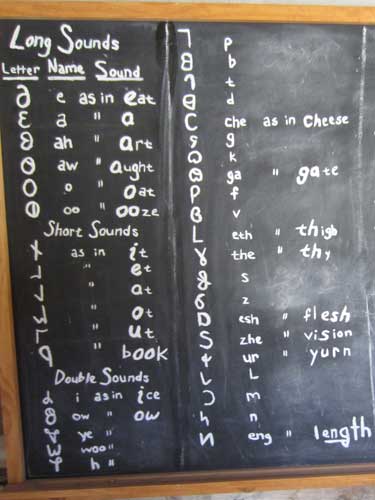 Long Sounds
Letter Name Sound
𐐀 e as in eat
𐐁 a " a
𐐂 ah " art
𐐃 aw " aught
𐐄 o " oat
𐐅 oo " ooze
Short Sounds
𐐆 as in it
𐐇 " et
𐐈 " at
𐐉 " ot
𐐊 " ut
𐐋 book
Double Sounds
𐐌 i as in ice
𐐍 ow " ow
𐐏 ye "
𐐎 woo "
𐐐 h "
𐐑 p
𐐒 b
𐐓 t
𐐔 d
𐐕 che as in cheese
𐐖 g
𐐗 k
𐐘 ga " gate
𐐙 f
𐐚 v
𐐛 eth " thigh
𐐜 the " thy
𐐝 s
𐐞 z
𐐟 esh " flesh
𐐠 zhe " vision
𐐡 ur " yurn
𐐢 L
𐐣 m
𐐤 n
𐐥 eng " length